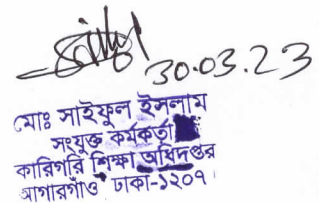 30.03.23
মোঃ সাইফুল ইসলাম
সংযুক্ত কর্মকর্তা
কারিগরি শিক্ষা অধিদপ্তর
আগারগাঁও ঢাকা-১২০৭।